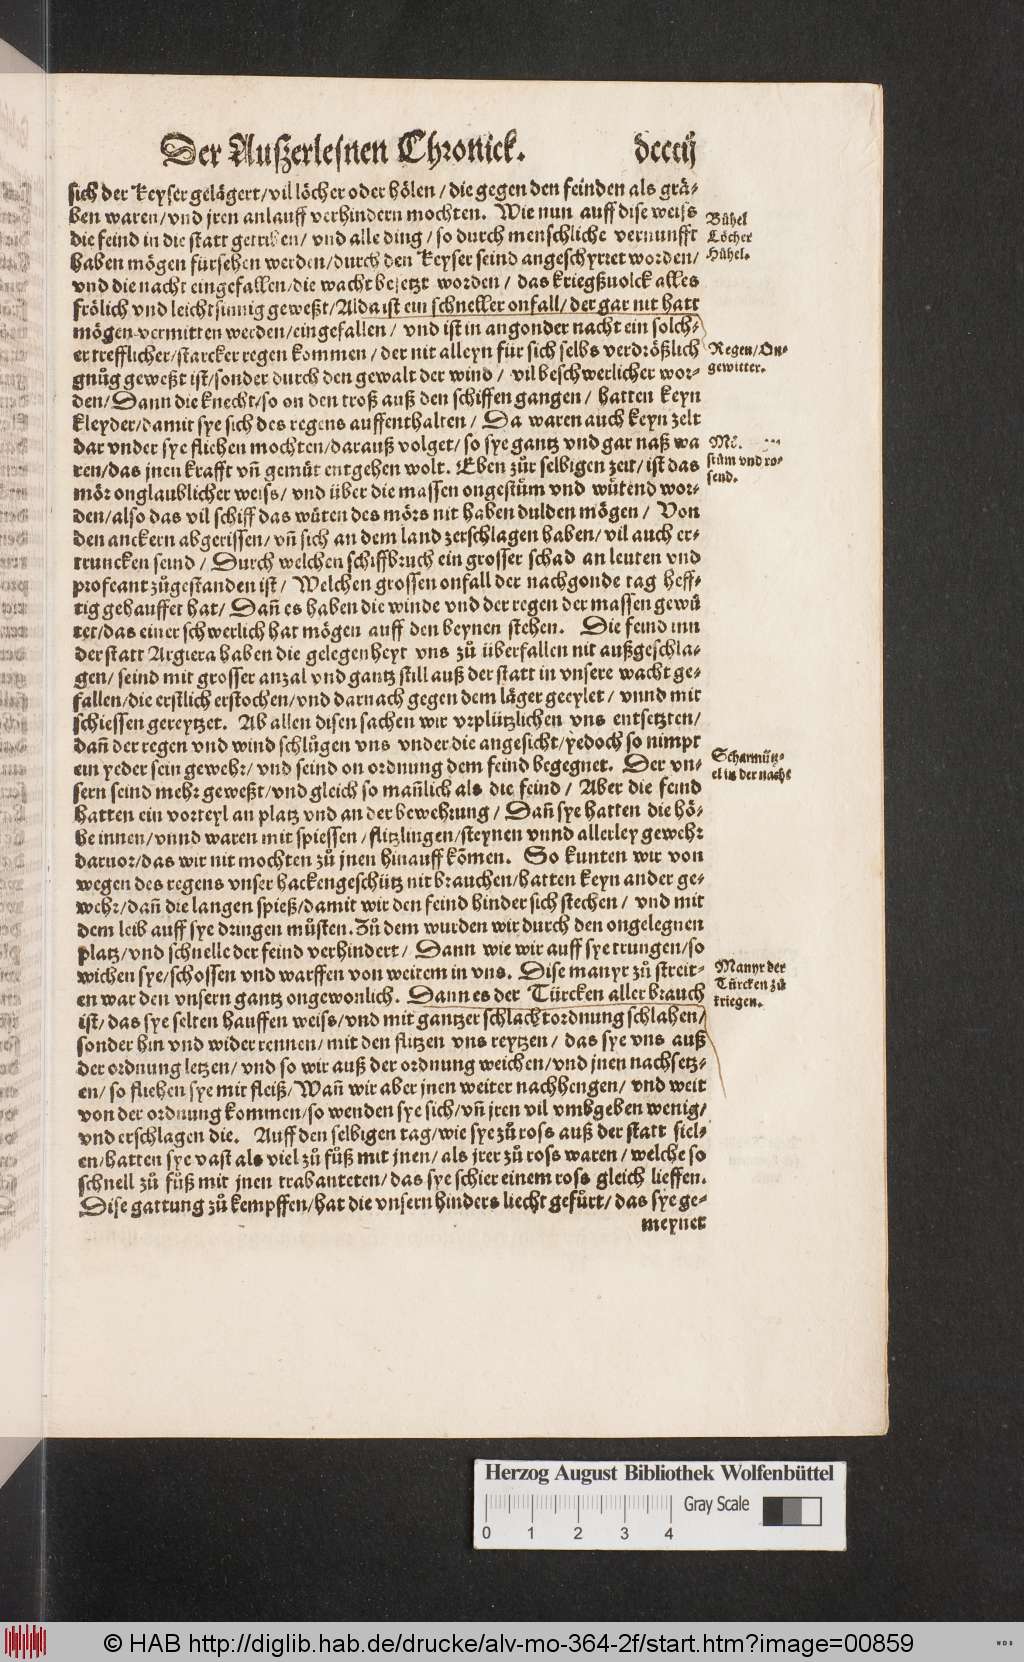 Der Außerlesnen Chronick. dcccij
sich der Keyser gelägert/vil löcher oder hölen/die gegen den feinden als grä-
ben waren/vnd jren anlauff verhindern mochten. Wie nun auff dise weiss
die feind in die statt getriben/ vnd alle ding/so durch menschliche vernunfft
haben mögen fürsehen werden/durch den Keyser seind angeschyrret worden/
vnd die nacht eingefallen/die wacht besetzt worden/ das kriegßuolck alles
frölich vnd leichtsinnig geweßt/Alda ist ein schneller onfall/der gar nit hatt
mögen vermitten werden/eingefallen/ vnd ist in angonder nacht ein solch-
er trefflicher/starcker regen kommen/der nit alleyn für sich selbs verdrößlich
gnůg geweßt ist/sonder durch den gewalt der wind/ vil beschwerlicher wor-
den/Dann die knecht/so on den troß auß den schiffen gangen/ hatten keyn
kleyder/damit sye sich des regens auffenthalten/ Da waren auch keyn zelt
dar vnder sye fliehen mochten/darauß volget/so sye gantz vnd gar naß wa
ren/das jnen krafft vñ gemůt entgehen wolt. Eben zůr selbigen zeit/ist das
mör onglaublicher weiss/ vnd über die massen ongestům vnd wůtend wor-
den/also das vil schiff das wůten des mörs nit haben dulden mögen/ Von
den anckern abgerissen/vñ sich an dem land zerschlagen haben/vil auch er-
truncken seind/Durch welchen schiffbruch ein grosser schad an leuten vnd
profeant zůgestanden ist/ Welchen grossen onfall der nachgonde tag heff-
tig gehauffet hat/ Dañ es haben die winde vnd der regen der massen gewů
tet/das einer schwerlich hat mögen auff den beynen stehen. Die feind inn
der statt Argiera haben die gelegenheyt vns zů überfallen nit außgeschla-
gen/seind mit grosser anzal vnd gantz still auß der statt in vnsere wacht ge-
fallen/die erstlich erstochen/vnd darnach gegen dem läger geeylet/ vnnd mit
schiessen gereytzet. Ab allen disen sachen wir vrplützlichen vns entsetzten/
dañ der regen vnd wind schlůgen vns vnder die angesicht/yedoch so nimpt
ein yeder sein gewehr/vnd seind on ordnung dem feind begegnet. Der vn-
sern seind mehr geweßt/vnd gleich so mañlich als die feind/ Aber die feind
hatten ein vorteyl an platz vnd an der bewehrung/ Dañ sye hatten die hö-
he innen/vnnd waren mit spiessen/flitzlingen/steynen vnnd allerley gewehr
daruor/das wir nit mochten zů jnen hinauff kōmen. So kunten wir von
wegen des regens vnser hackengeschütz nit brauchen/hatten keyn ander ge-
wehr/dañ die langen spieß/damit wir den feind hinder sich stechen/ vnd mit
dem leib auff sye dringen můsten. Zů dem wurden wir durch den ongelegnen
platz/vnd schnelle der feind verhindert/ Dann wie wir auff sye trungen/so
wichen sye/schossen vnd warffen von weitem in vns. Dise manyr zů streit-
en war den vnsern gantz ongewonlich. Dann es der Türcken aller brauch
ist/das sye selten hauffen weiss/vnd mit gantzer schlachtordnung schlahen/
sonder hin vnd wider rennen/mit den flitzen vns reytzen/ das sye vns auß
der ordnung letzen/ vnd so wir auß der ordnung weichen/vnd jnen nachsetz-
en/so fliehen sye mit fleiß/Wañ wir aber jnen weiter nachhengen/ vnd weit
von der ordnung kommen/so wenden sye sich/vñ jren vil vmbgeben wenig/
vnd erschlagen die. Auff den selbigen tag/wie sye zů ross auß der statt fiel-
en/hatten sye vast als viel zů fůß mit jnen/als jrer zů ross waren/welche so
schnell zů fůß mit jnen trabanteten/das sye schier einem ross gleich lieffen.
Dise gattung zů kempffen/hat die vnsern hinders liecht gefůrt/das sye ge-
meynet
Bühel
Löcher
Hühel.
Regen/On-
gewitter.
stům vnd to-
send.
Scharmütz-
el in der nacht
Manyr der
Türcken zů
kriegen.
Herzog August Bibliothek Wolfenbüttel
0 1 2 3 4 Gray Scale
© HAB http://diglib.hab.de/drucke/alv-mo-364-2f/start.htm?image=00859